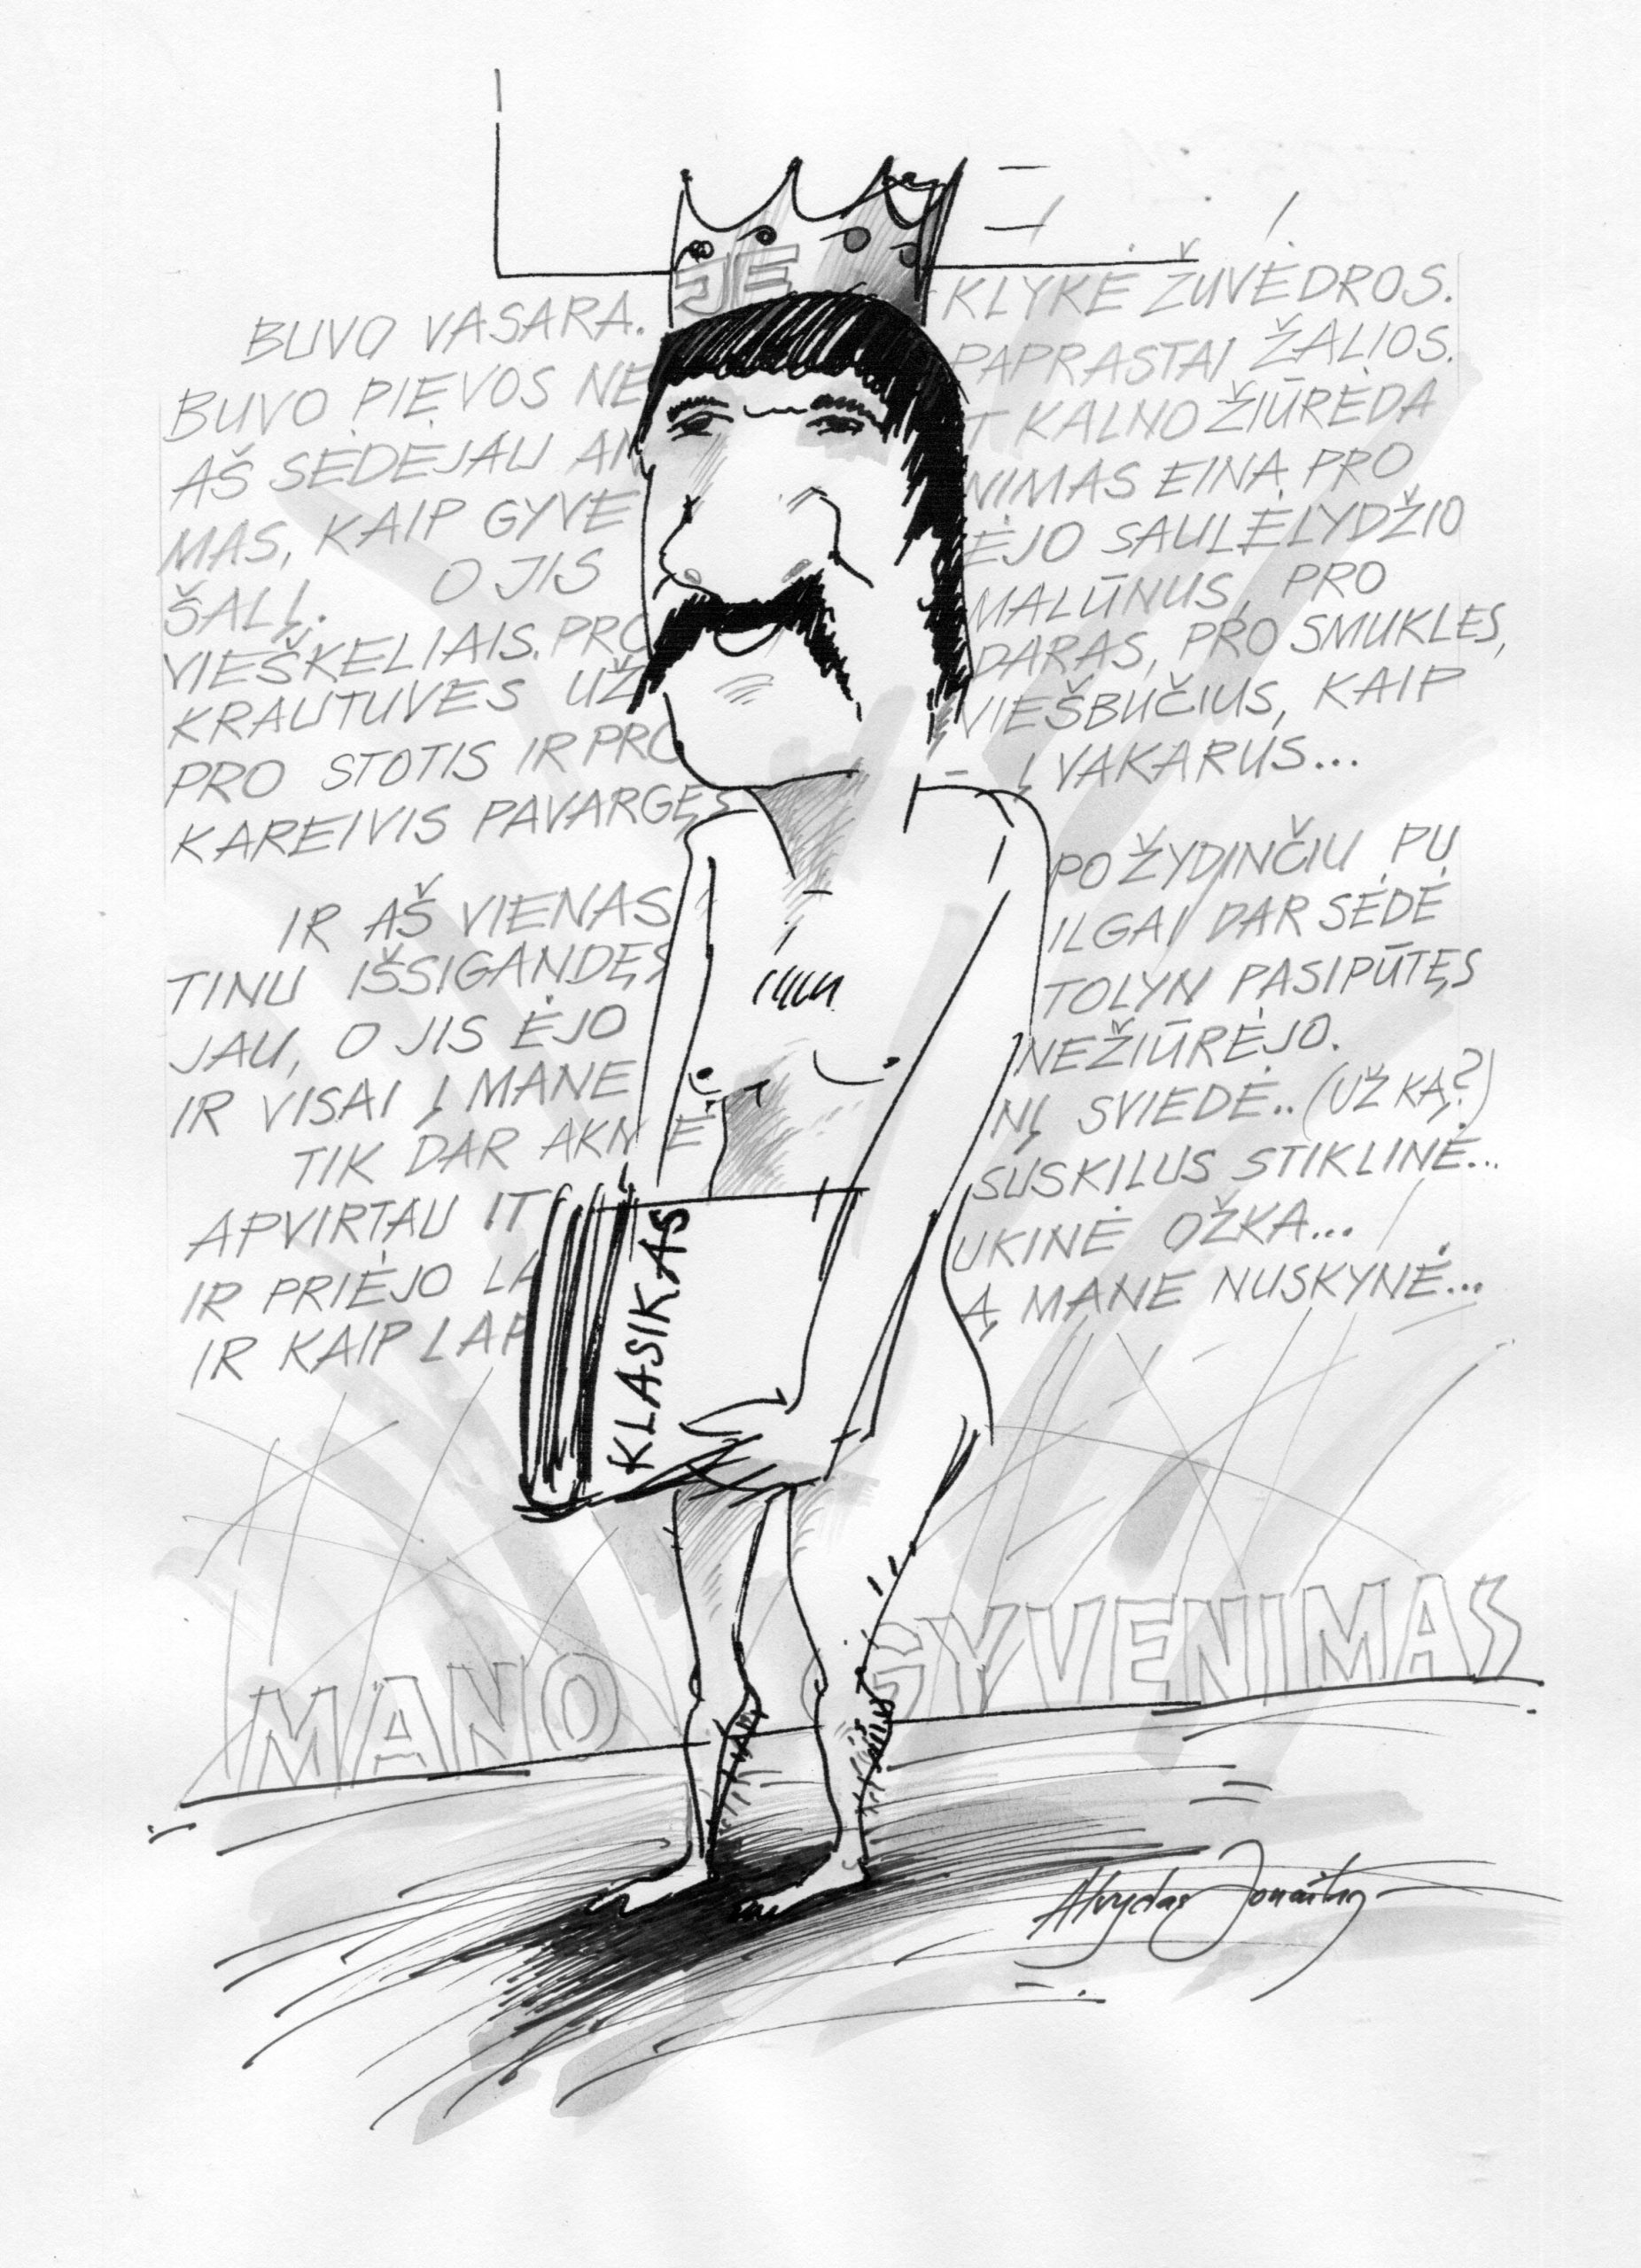 JE
BUVO VASARA. KLYKĖ ŽUVĖDROS.
BUVO PIEVOS NE PAPRASTAI ŽALIOS.
AŠ SĖDĖJAU AN T KALNO ŽIŪRĖDA
MAS, KAIP GYVE NIMAS EINA PRO
ŠALĮ. O JIS ĖJO SAULĖLYDŽIO
VIEŠKELIAIS. PRO MALŪNUS, PRO
KRAUTUVES UŽ DARAS, PRO SMUKLES,
PRO STOTIS IR PRO VIEŠBUČIUS, KAIP
KAREIVIS PAVARGĘS Į VAKARUS...
IR AŠ VIENAS PO ŽYDINČIU PU
TINU IŠSIGANDĘS ILGAI DAR SĖDĖ
JAU, O JIS ĖJO TOLYN PASIPŪTĘS
IR VISAI Į MANE NEŽIŪRĖJO.
TIK DAR AKM E NĮ SVIEDĖ.. (UŽ KĄ?)
APVIRTAU IT SUSKILUS STIKLINĖ...
IR PRIĖJO LA UKINĖ OŽKA...
IR KAIP LAP Ą MANE NUSKYNĖ...
KLASIKAS
MANO GYVENIMAS
Alvydas Jonaitis